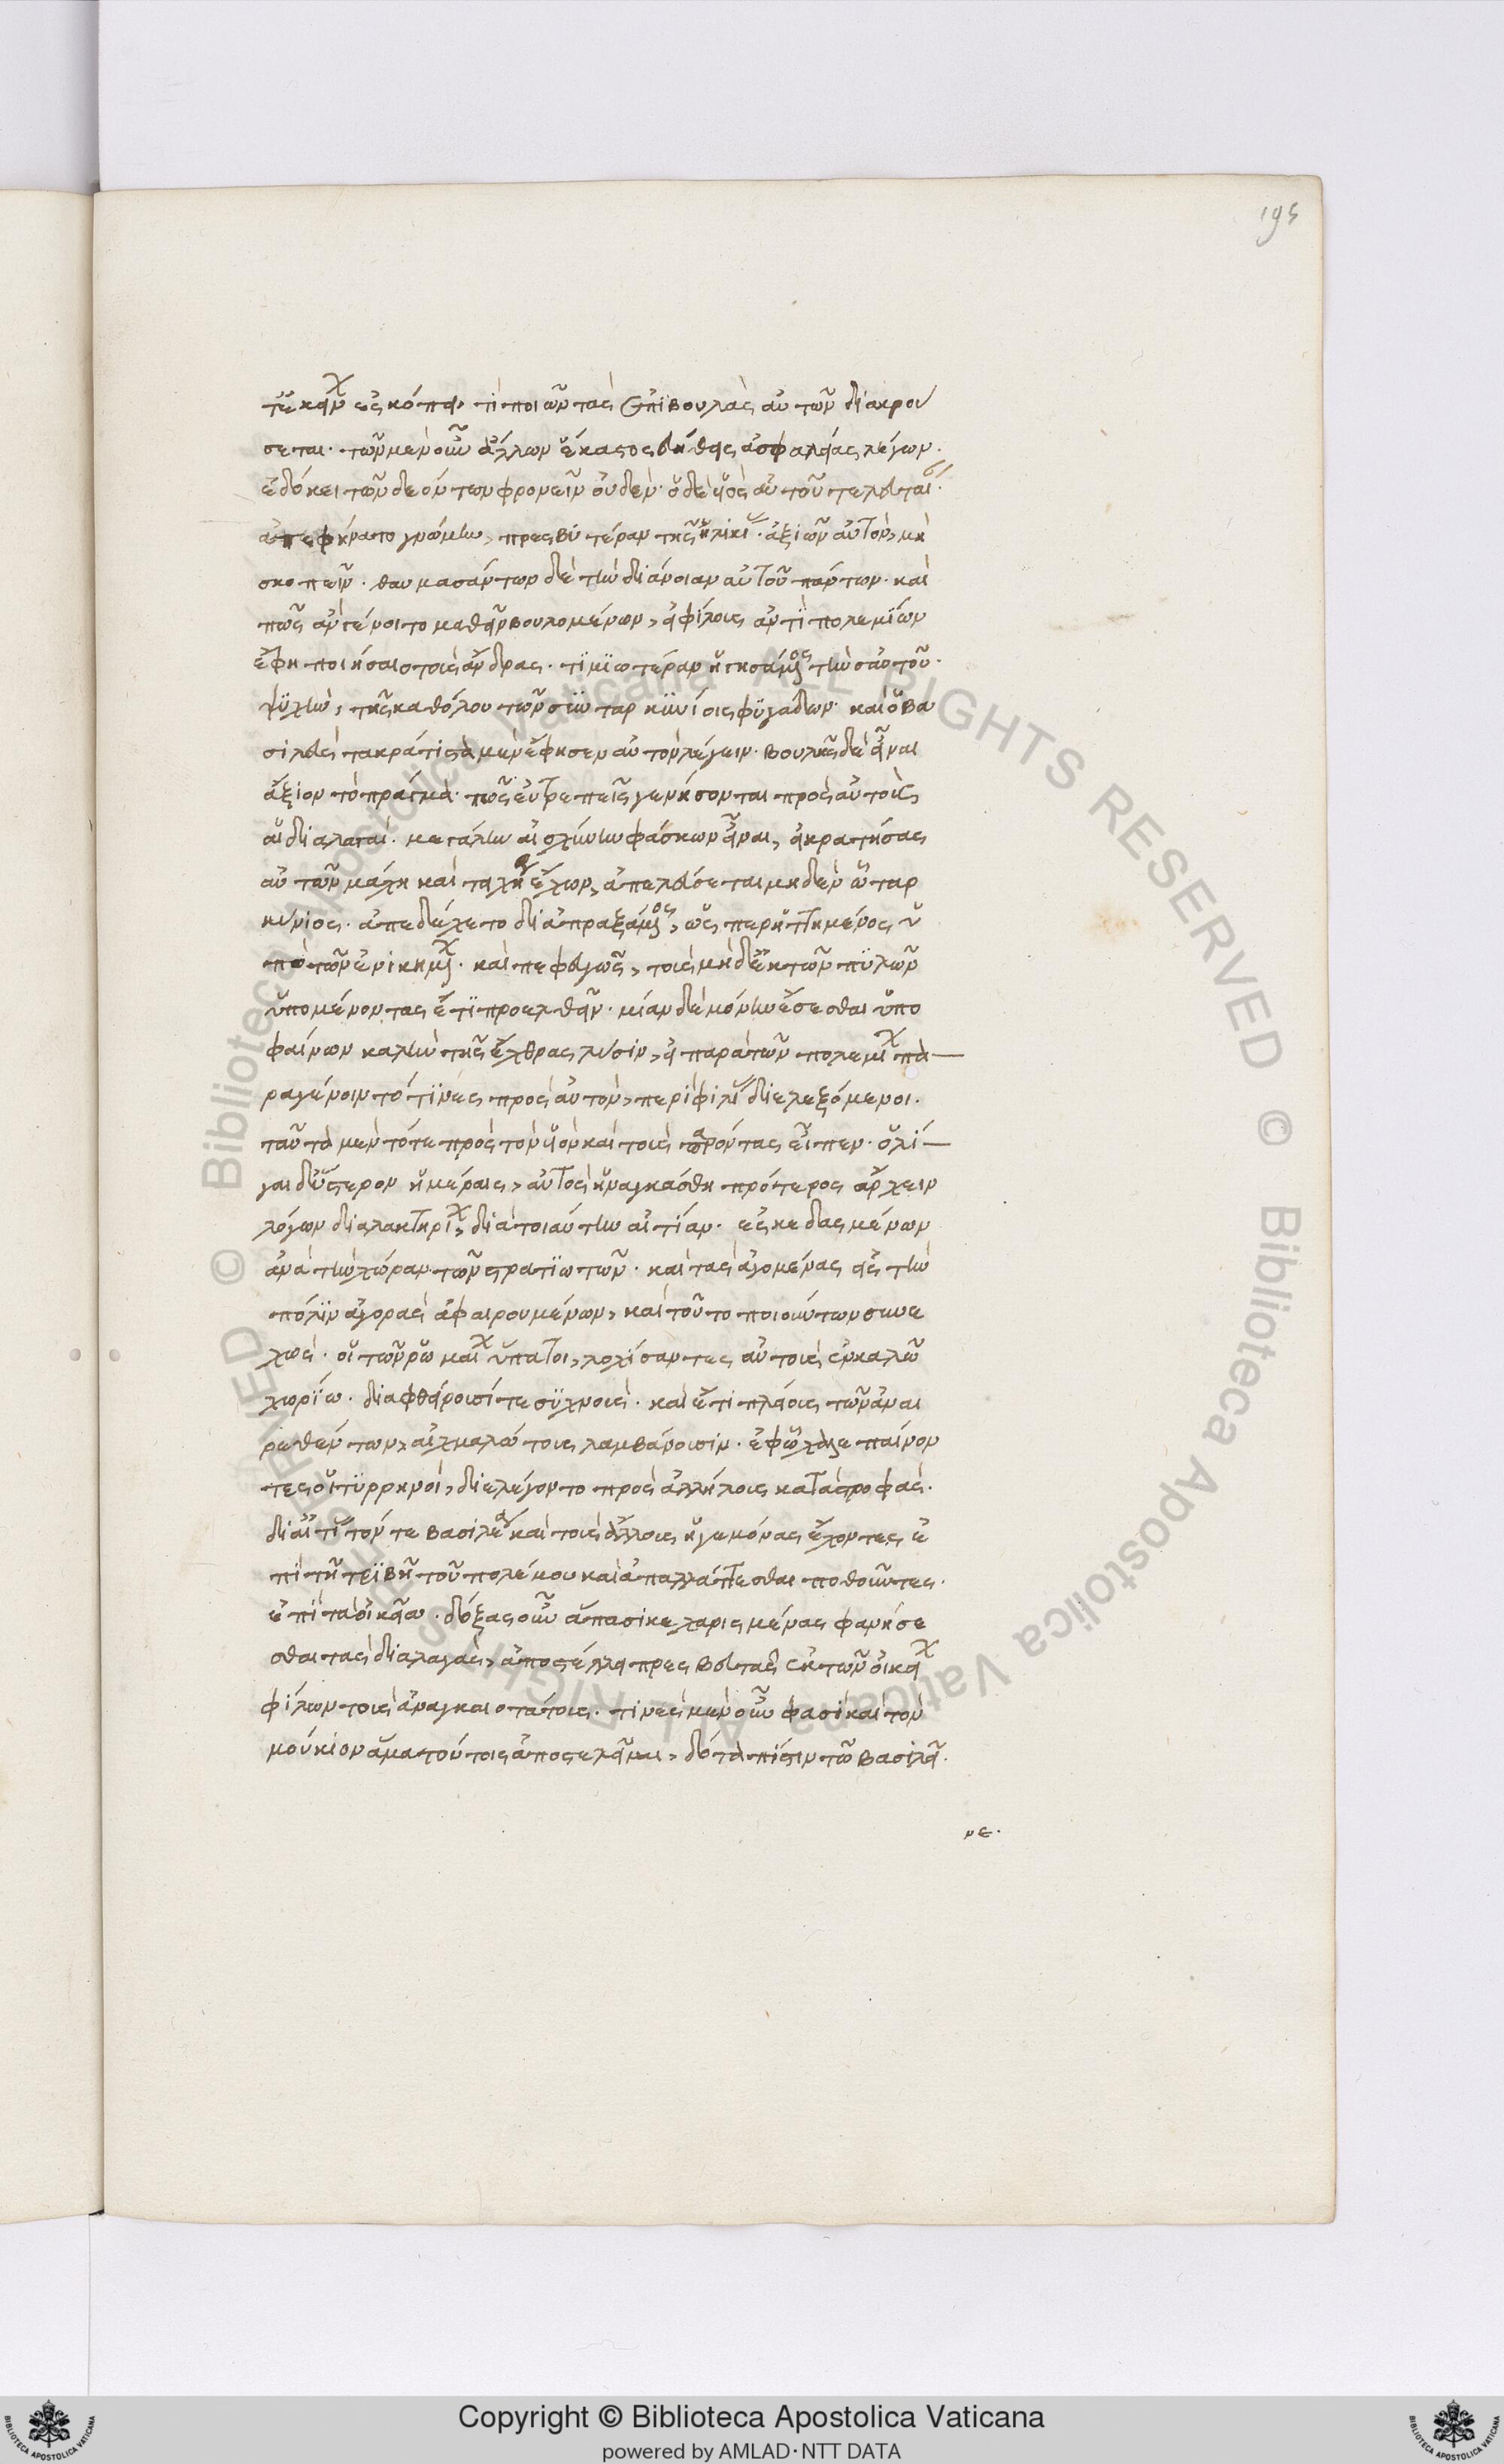 195
τ' ἐκεῖνον ἐσκόπει τί ποιῶν τὰς ἐπιβουλὰς αὐτῶν διακρού
σεται· τῶν μὲν οὖν ἄλλων ἕκαστος εὐήθεις ἀσφαλείας λέγων
ἐδόκει τῶν δεόντων φρονεῖν οὐδέν· ὁ δὲ υἱὸς αὐτοῦ τελευταῖος
ἀπεφήνατο γνώμην, πρεσβυτέραν τῆς ἡλικίας· ἀξιῶν αὐτὸν, μὴ
σκοπεῖν· θαυμασάντων δὲ τὴν διάνοιαν αὐτοῦ πάντων· καὶ
πῶς ἂν γένοιτο μαθεῖν βουλομένων, εἰ φίλους ἀντὶ πολεμίων
ἔφη ποιήσαις τοὺς ἄνδρας· τιμιωτέραν ἡγησάμενος τὴν σαυτοῦ
ψυχὴν, τῆς καθόδου τῶν σὺν ταρκυνίοις φυγάδων· καὶ ὁ βα
σιλεὺς τὰ κράτιστα μὲν ἔφησεν αὐτὸν λέγειν· βουλῆς δὲ εἶναι
ἄξιον τὸ πρᾶγμα· πῶς εὐπρεπεῖς γενήσονται πρὸς αὐτοὺς
αἱ διαλαγαί· μεγάλην αἰσχύνην φάσκων εἶναι, εἰ κρατήσας
αὐτῶν μάχη καὶ τείχη ἔχων, ἀπελεύσεται μηδὲν ὧν ταρ
κύνιος· ἀπεδέχετο διαπραξάμενος, ὥσπερ ἡττημένος ὑ
πὸ τῶν ἐνικημένων· καὶ πεφευγὼς, τοὺς μηδ' ἐκ τῶν πυλῶν
ὑπομένοντας ἔτι προελθεῖν· μίαν δὲ μόνην ἔσεσθαι ὑπο
φαίνων καλὴν τῆς ἔχθρας λύσιν, εἰ παρὰ τῶν πολεμίων πα
ραγένοιντό τινες πρὸς αὐτὸν, περὶ φιλίας διελεξόμενοι·
ταῦτα μὲν τότε πρὸς τὸν υἱὸν καὶ τοὺς παρόντας εἶπεν· ὀλί
γαι δ' ὕστερον ἡμέραις, αὐτὸς ἠναγκάσθη πρότερος ἄρχειν
λόγων διαλακτηρίων, διὰ τοιαύτην αἰτίαν· ἐσκεδασμένων
ἀνὰ τὴν χώραν τῶν στρατιωτῶν· καὶ τὰς ἀγομένας εἰς τὴν
πόλιν ἀγορὰς ἀφαιρουμένων, καὶ τοῦτο ποιούντων συνε
χῶς· οἱ τῶν ῥωμαίων ὕπατοι, λοχίσαντες αὐτοὺς ἐν καλῷ
χωρίῳ· διαφθείρουσί τε συχνούς· καὶ ἔτι πλείους τῶν ἀναι
ρεθέντων, αἰχμαλώτους λαμβάνουσιν· ἐφ' ᾧ χαλεπαίνον
τες οἱ τυρρηνοὶ, διελέγοντο πρὸς ἀλλήλους κατὰ στροφάς·
δι' αἰτίας τόν τε βασιλέα καὶ τοὺς ἄλλους ἡγεμόνας ἔχοντες ἐ
πὶ τῇ τριβῇ τοῦ πολέμου καὶ ἀπαλλάττεσθαι ποθοῦντες
ἐπὶ τὰ οἰκεῖα· δόξας οὖν ἅπασι κεχαρισμένας φανήσε
σθαι τὰς διαλαγὰς, ἀποστέλλει πρεσβευτὰς ἐκ τῶν οἰκείων
φίλων τοὺς ἀναγκαιοτάτους· τινὲς μὲν οὖν φασὶ καὶ τὸν
μούκιον ἅμα τούτοις ἀποσταλῆναι, δόντα πίστιν τῷ βασιλεῖ·
νε·
Copyright © Biblioteca Apostolica Vaticana
powered by AMLAD·NTT DATA